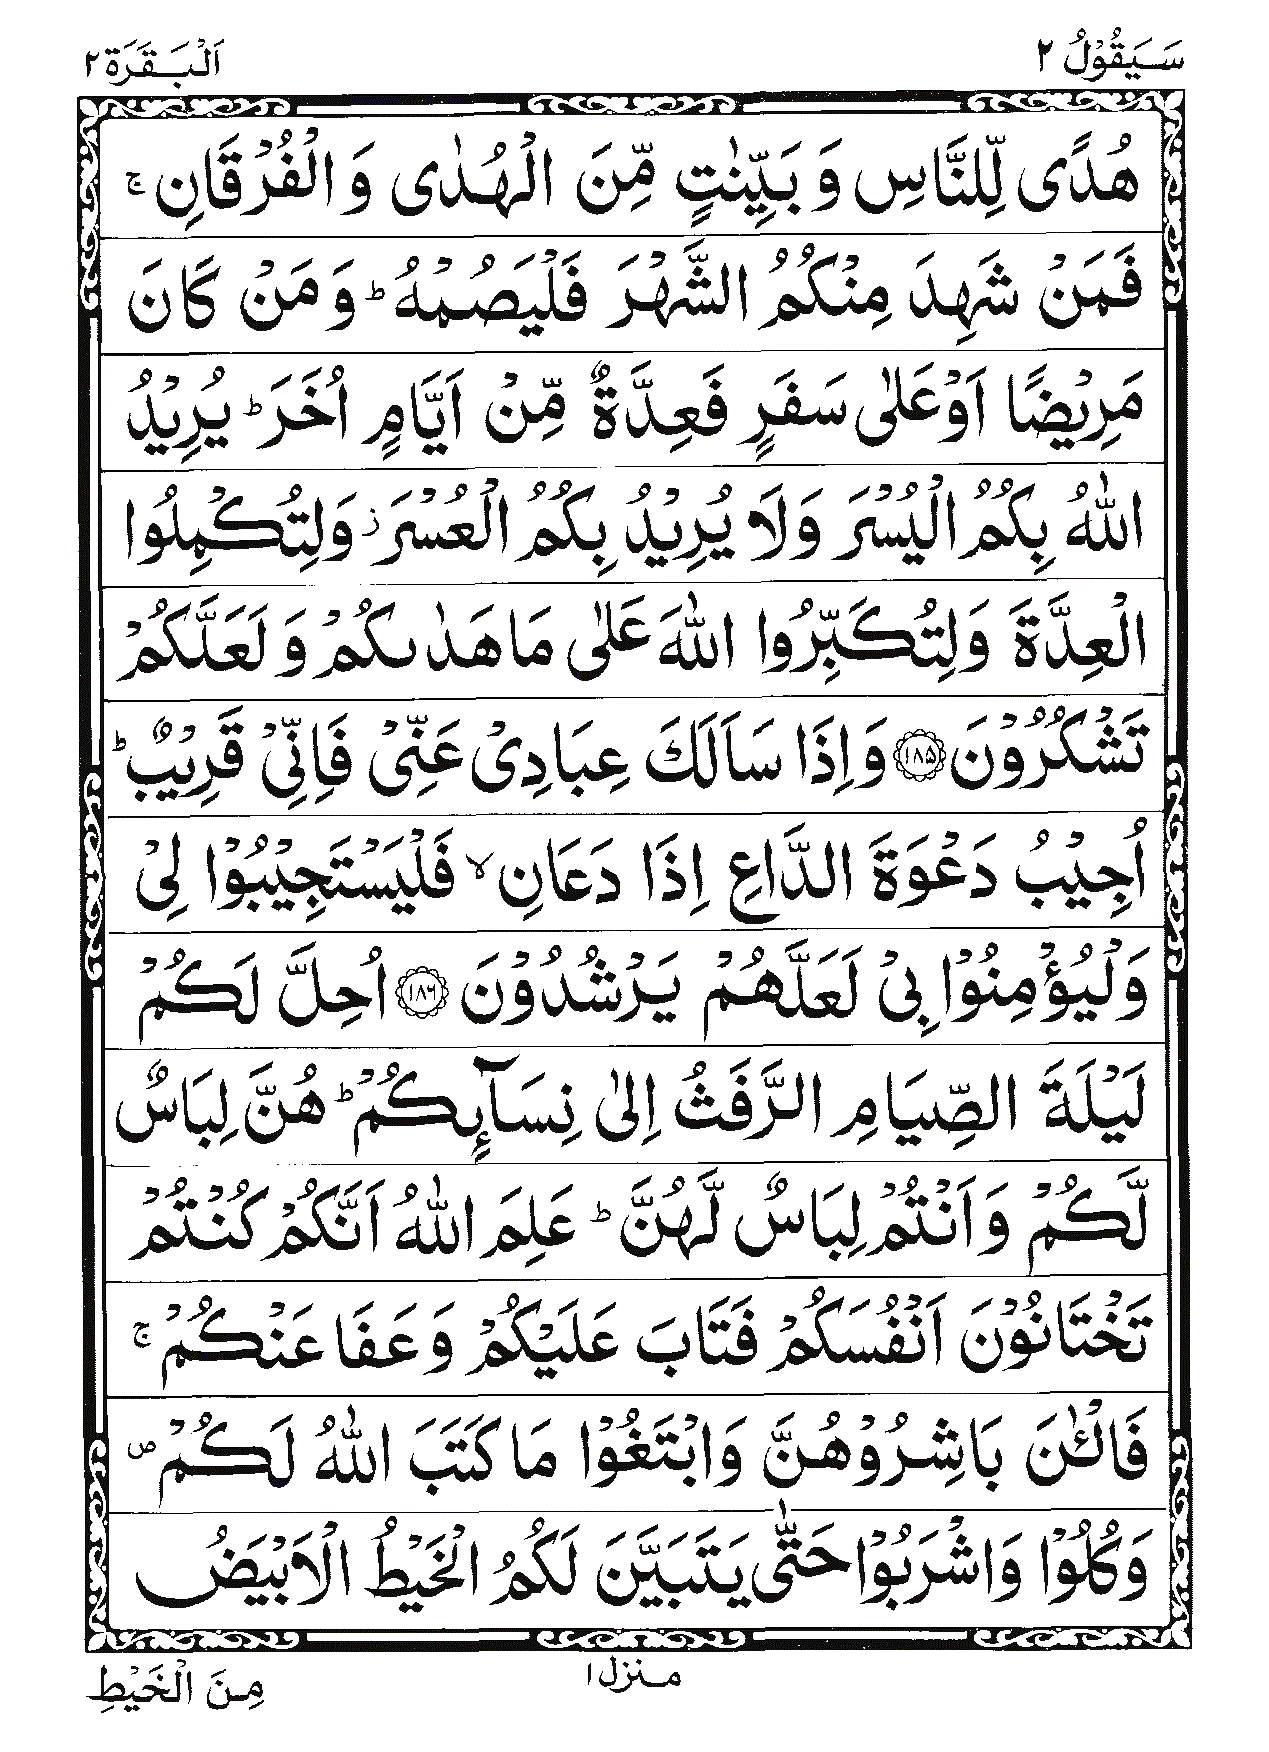 سَيَقُوْلُ ٢
اَلْبَقَرَة ٢
هُدًى لِّلنَّاسِ وَ بَيِّنٰتٍ مِّنَ الْهُدٰى وَ الْفُرْقَانِ ۚ
فَمَنْ شَهِدَ مِنْكُمُ الشَّهْرَ فَلْيَصُمْهُ ؕ وَ مَنْ كَانَ
مَرِيْضًا اَوْعَلٰى سَفَرٍ فَعِدَّةٌ مِّنْ اَيَّامٍ اُخَرَ ؕ يُرِيْدُ
اللّٰهُ بِكُمُ الْيُسْرَ وَلَا يُرِيْدُ بِكُمُ الْعُسْرَ ز وَلِتُكْمِلُوا
الْعِدَّةَ وَلِتُكَبِّرُوا اللّٰهَ عَلٰى مَا هَدٰىكُمْ وَ لَعَلَّكُمْ
تَشْكُرُوْنَ ۝١٨٥ وَ اِذَا سَاَلَكَ عِبَادِىْ عَنِّىْ فَاِنِّىْ قَرِيْبٌ ؕ
اُجِيْبُ دَعْوَةَ الدَّاعِ اِذَا دَعَانِ ۙ فَلْيَسْتَجِيْبُوْا لِىْ
وَلْيُؤْمِنُوْا بِىْ لَعَلَّهُمْ يَرْشُدُوْنَ ۝١٨٦ اُحِلَّ لَكُمْ
لَيْلَةَ الصِّيَامِ الرَّفَثُ اِلٰى نِسَآئِكُمْ ؕ هُنَّ لِبَاسٌ
لَّكُمْ وَ اَنْتُمْ لِبَاسٌ لَّهُنَّ ؕ عَلِمَ اللّٰهُ اَنَّكُمْ كُنْتُمْ
تَخْتَانُوْنَ اَنْفُسَكُمْ فَتَابَ عَلَيْكُمْ وَ عَفَا عَنْكُمْ ۚ
فَالْئٰنَ بَاشِرُوْهُنَّ وَابْتَغُوْا مَا كَتَبَ اللّٰهُ لَكُمْ ص
وَكُلُوْا وَاشْرَبُوْا حَتّٰى يَتَبَيَّنَ لَكُمُ الْخَيْطُ الْاَبْيَضُ
منزل ١
مِنَ الْخَيْطِ